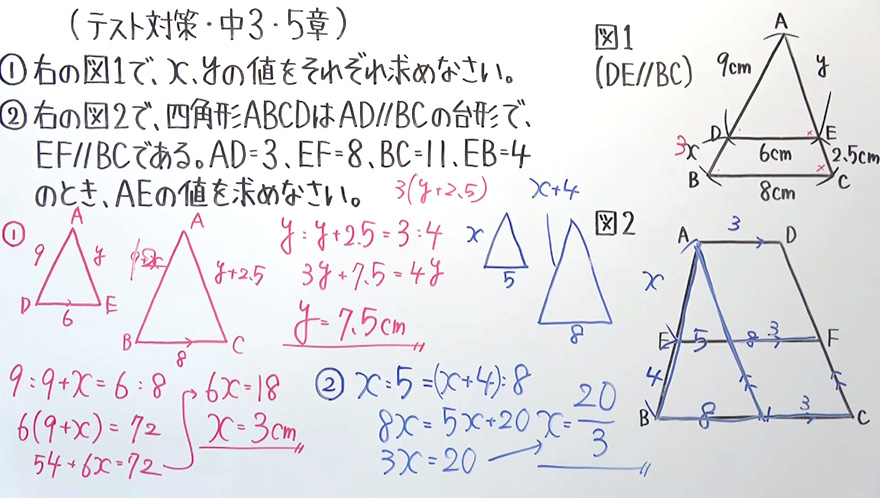 (テスト対策・中3・5章)
①右の図1で、x、yの値をそれぞれ求めなさい。
②右の図2で、四角形ABCDはAD//BCの台形で、
EF//BCである。AD=3、EF=8、BC=11、EB=4
のとき、AEの値を求めなさい。
図1
(DE//BC)
A
9cm
y
D
E
3
x
6cm
2.5cm
B
8cm
C
3(y+2.5)
①
A
9
y
D
6
E
A
y+2.5
B
8
C
y:y+2.5=3:4
3y+7.5=4y
y=7.5cm
9:9+x=6:8
6(9+x)=72
54+6x=72
6x=18
x=3cm
x
5
x+4
8
②x:5=(x+4):8
8x=5x+20
3x=20
x=20/3
図2
A
3
D
x
E
5
8
3
F
4
B
8
3
C